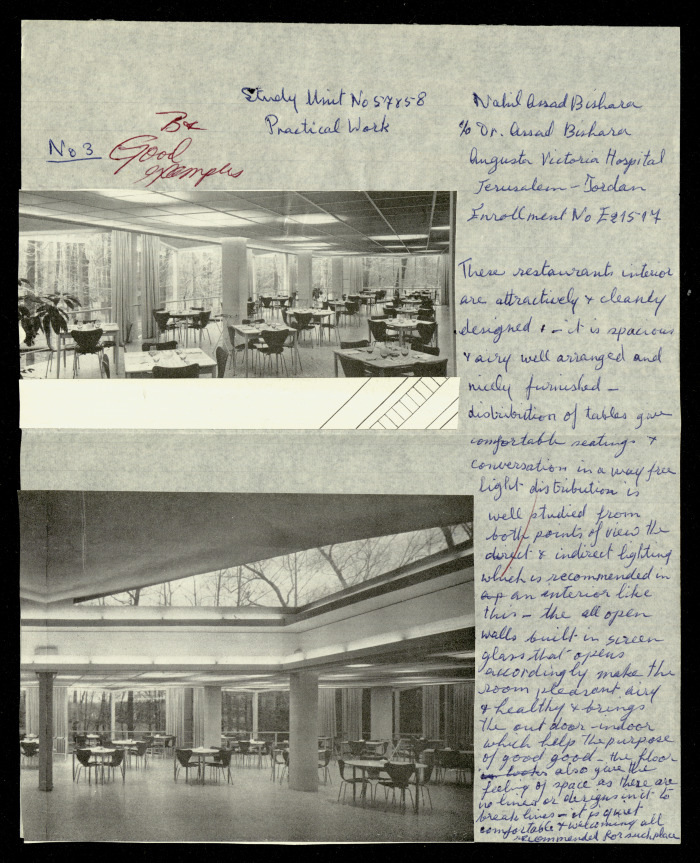 Study Unit No 57 & 58
Practical Work
No 3
B+
Good
examples
Nabil Assad Bishara
c/o Dr. Assad Bishara
Augusta Victoria Hospital
Jerusalem - Jordan
Enrollment No E21517
These restaurants interior
are attractively & cleanly
designed & - it is spacious
& airy well arranged and
nicely furnished -
distribution of tables give
comfortable seatings &
conversation in a way free
light distribution is
well studied from
both points of view the
direct & indirect lighting
which is recommended in
an interior like
this - the all open
walls built in screen
glass that opens
accordingly make the
room pleasant airy
& healthy & brings
the out door indoor
which help the purpose
of good good - the floor
also give the
feeling of space as there are
no lines or designs in it to
break lines - it is quiet
comfortable & welcoming all
recommended for such place